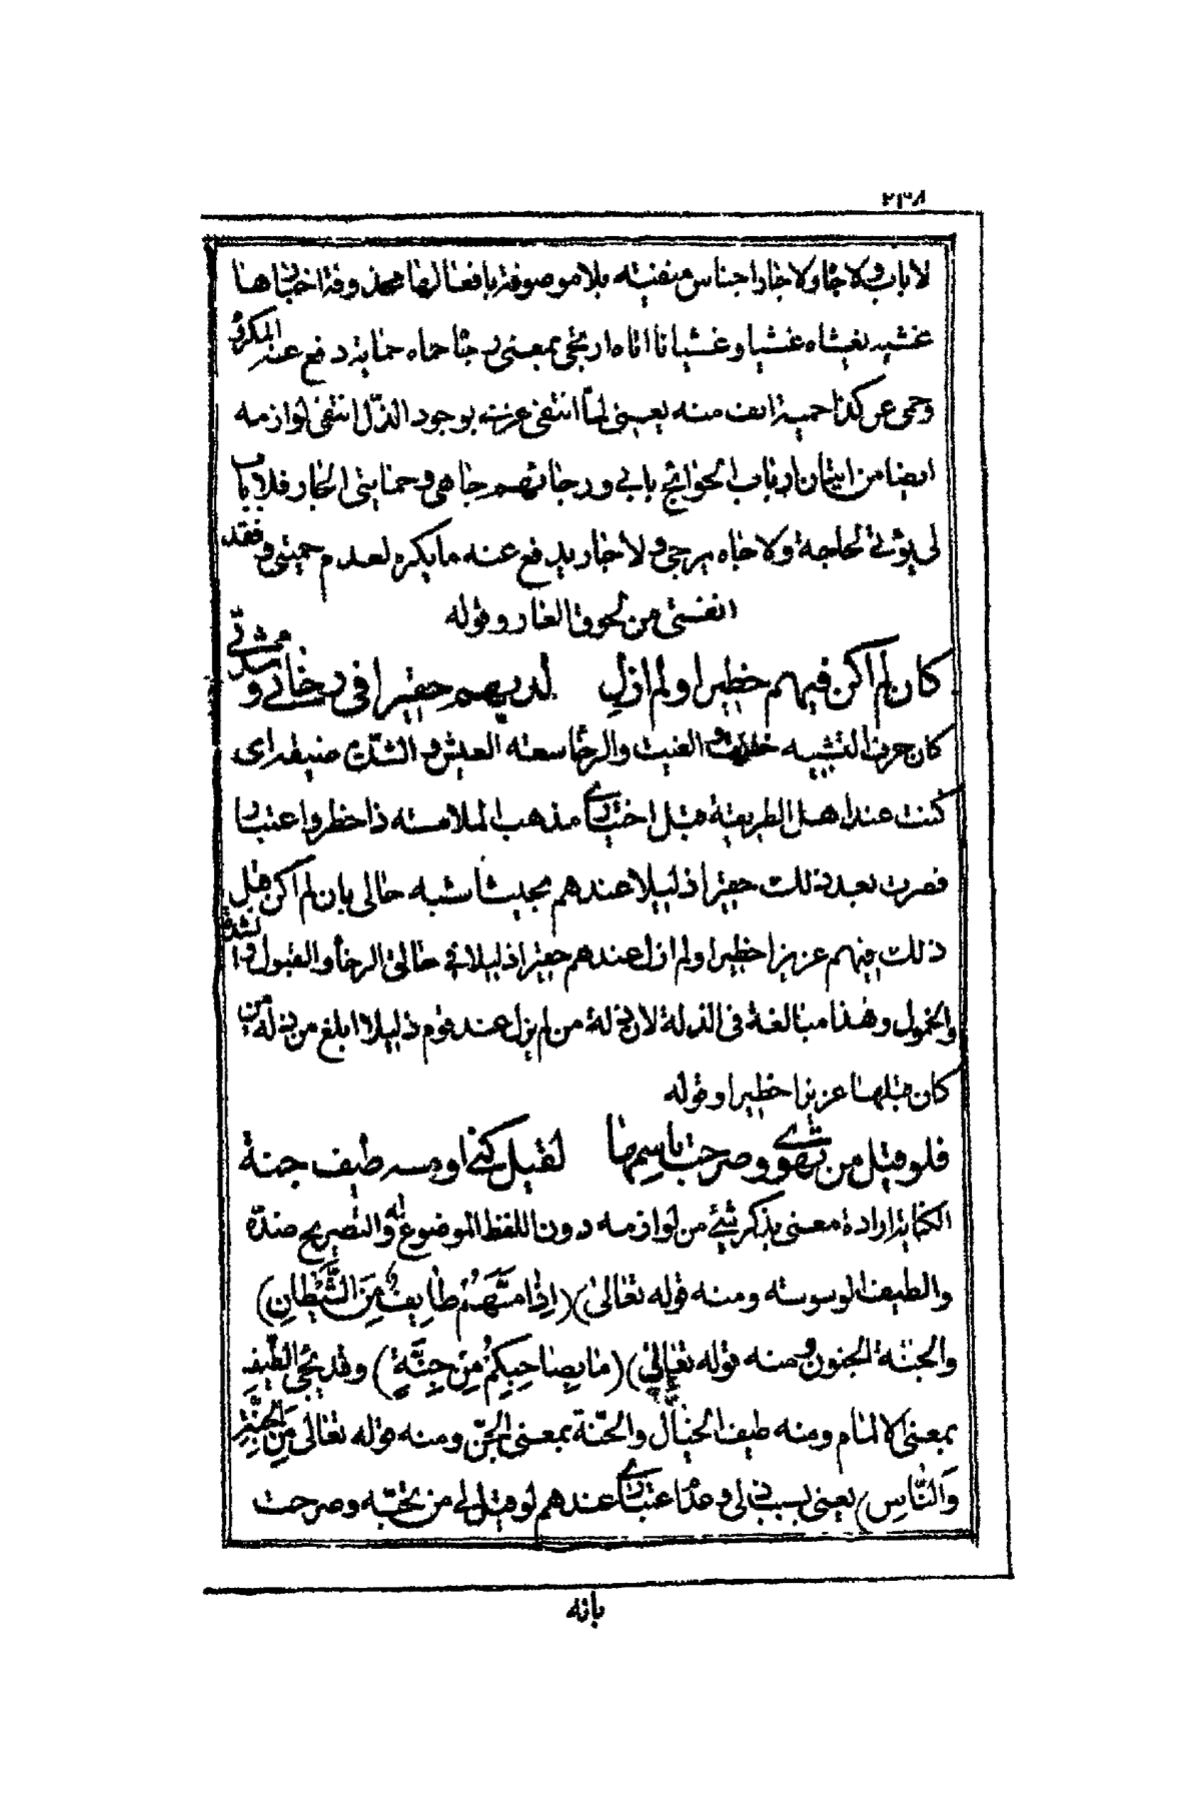 ٢٣٨
لا باب ولا جاه ولا جار اجناس منفيته بلا موصوفة بافعالها محذوفة اخبارها
غشيه يغشاه غشيا وغشيانا اتاه ارتجى بمعنى رجا حماه حماية دفع عنه المكروه
وحمى عن كذا حمية انف منه يعينى لما انتفى عزته بوجود الذل انتفى لوازمه
ايضا من اتيان ارباب الحوائج بابى ورجائهم جاهى وحمايتى الجار فلا باب
لى يؤتى لحاجة ولا جاه يرجى ولا جار يدفع عنه ما يكره لعدم حميتى وفقد
انفستى من لحوق العار وقوله
كان لم اكن فيهم خطيرا ولم ازل لديهم حقيرا فى رخائى وشدتى
كان حرف التشبيه خففت والرخا سعته العيش والشدة ضيقه اى
كنت عند اهل الطريقة قبل اختيارى مذهب الملامته ذا خطر واعتبار
فصرت بعد ذلك حقيرا ذليلا عندهم بحيث اشبه حالى بان لم اكن قبل
ذلك فيهم عزيزا خطيرا ولم ازل عندهم حقيرا ذليلا فى حالتى الرخا والقبول والشدة
والخمول وهذا مبالغة فى الذلة لان ذلة من لم يزل عند قوم ذليلا ابلغ من ذلة من
كان قبلها عزيزا خطيرا وقوله
فلو قيل من تهوى وصرحت باسمها لقيل كنى او مسه طيف جنة
الكناية ارادة معنى بذكر شئ من لوازمه دون اللفظ الموضوع له والتصريح ضده
والطيف الوسوسته ومنه قوله تعالى (اذا مسهم طايف من الشيطان)
والجنة الجنون ومنه قوله تعالى (ما بصاحبكم من جنة) وقد يجئ الطيف
بمعنى الالمام ومنه طيف الخيال والجنة بمعنى الجن ومنه قوله تعالى من الجنة
والناس) يعنى بسبب ذلى وعدم اعتبارى عندهم لو قيل لى من تحبه وصرحت
بانه